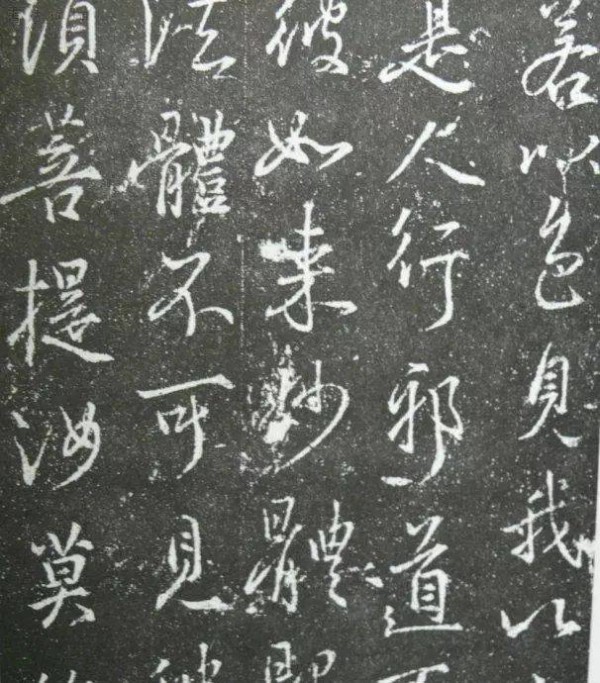 若以色見我以
是人行邪道不
彼如来妙體即
法體不可見彼
須菩提汝莫